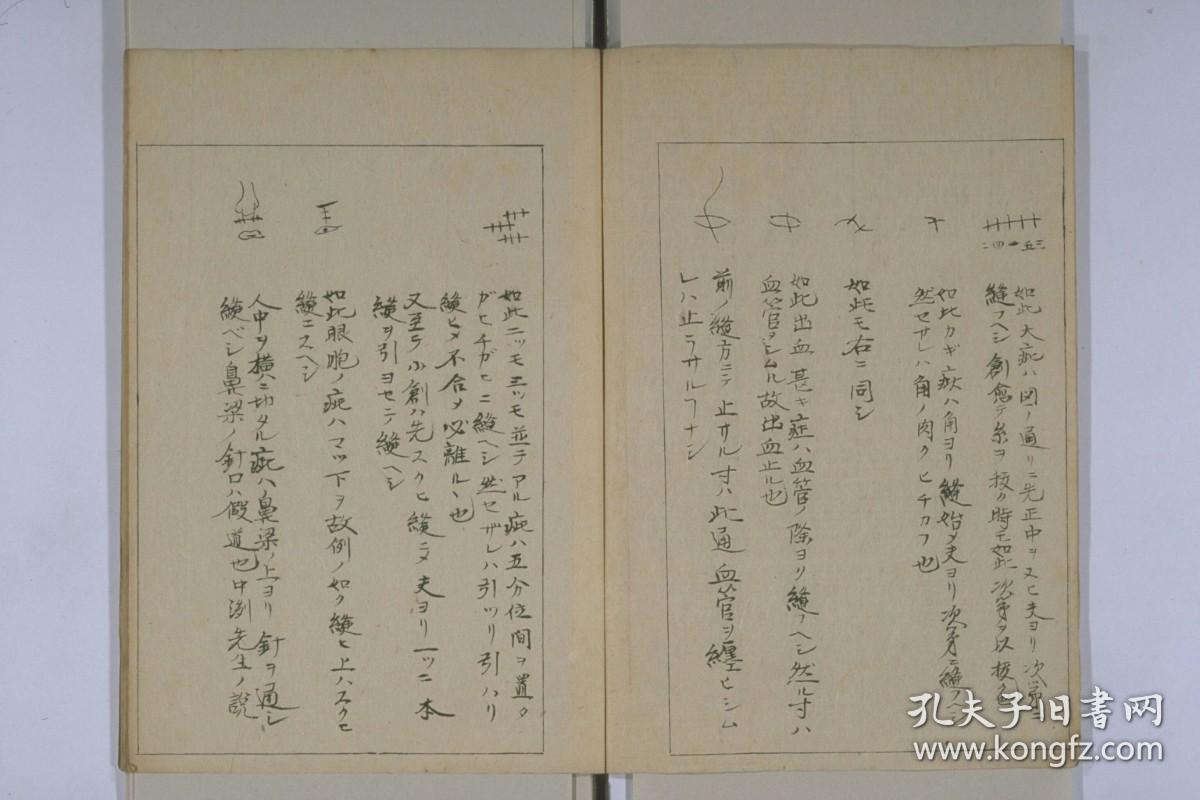 二四一五三
如此大疵ハ図ノ通リニ先正中ヲヌヒ夫ヨリ次第ニ
縫フヘシ創愈テ糸ヲ抜ク時モ如此次第ヲ以抜ク也
如此カギ疵ハ角ヨリ縫始メ夫ヨリ次第ニ縫フヘシ
然セザレハ角ノ肉クヒチカフ也
如此モ右ニ同シ
如此出血甚キ症ハ血管ノ除ヨリ縫フヘシ然ル寸ハ
血管タシムル故出血止ル也
前ノ縫方ニテ止サル寸ハ此通血管ヲ纏ヒシム
レハ止ラサルヿナシ
如此二ツモ三ツモ並テアル疵ハ五分位間ヲ置タ
ガヒチガヒニ縫ヘシ然セザレハ引ツリ引ハリ
縫ヒメ不合メ必離ルヽ也
又至ラ小創ハ先スクヒ縫ニメ夫ヨリ一ツニ本
縫ヲ引ヨセテ縫ヘシ
如此眼胞ノ疵ハマツ下ヲ故例ノ如ク縫ヒ上ハスクヒ
縫ニスヘシ
人中ヲ横ハニ切タル疵ハ鼻梁ノ上ヨリ針ヲ通シ
縫ベシ鼻梁ノ針口ハ假道也中渕先生ノ説
孔夫子旧书网
www.kongfz.com